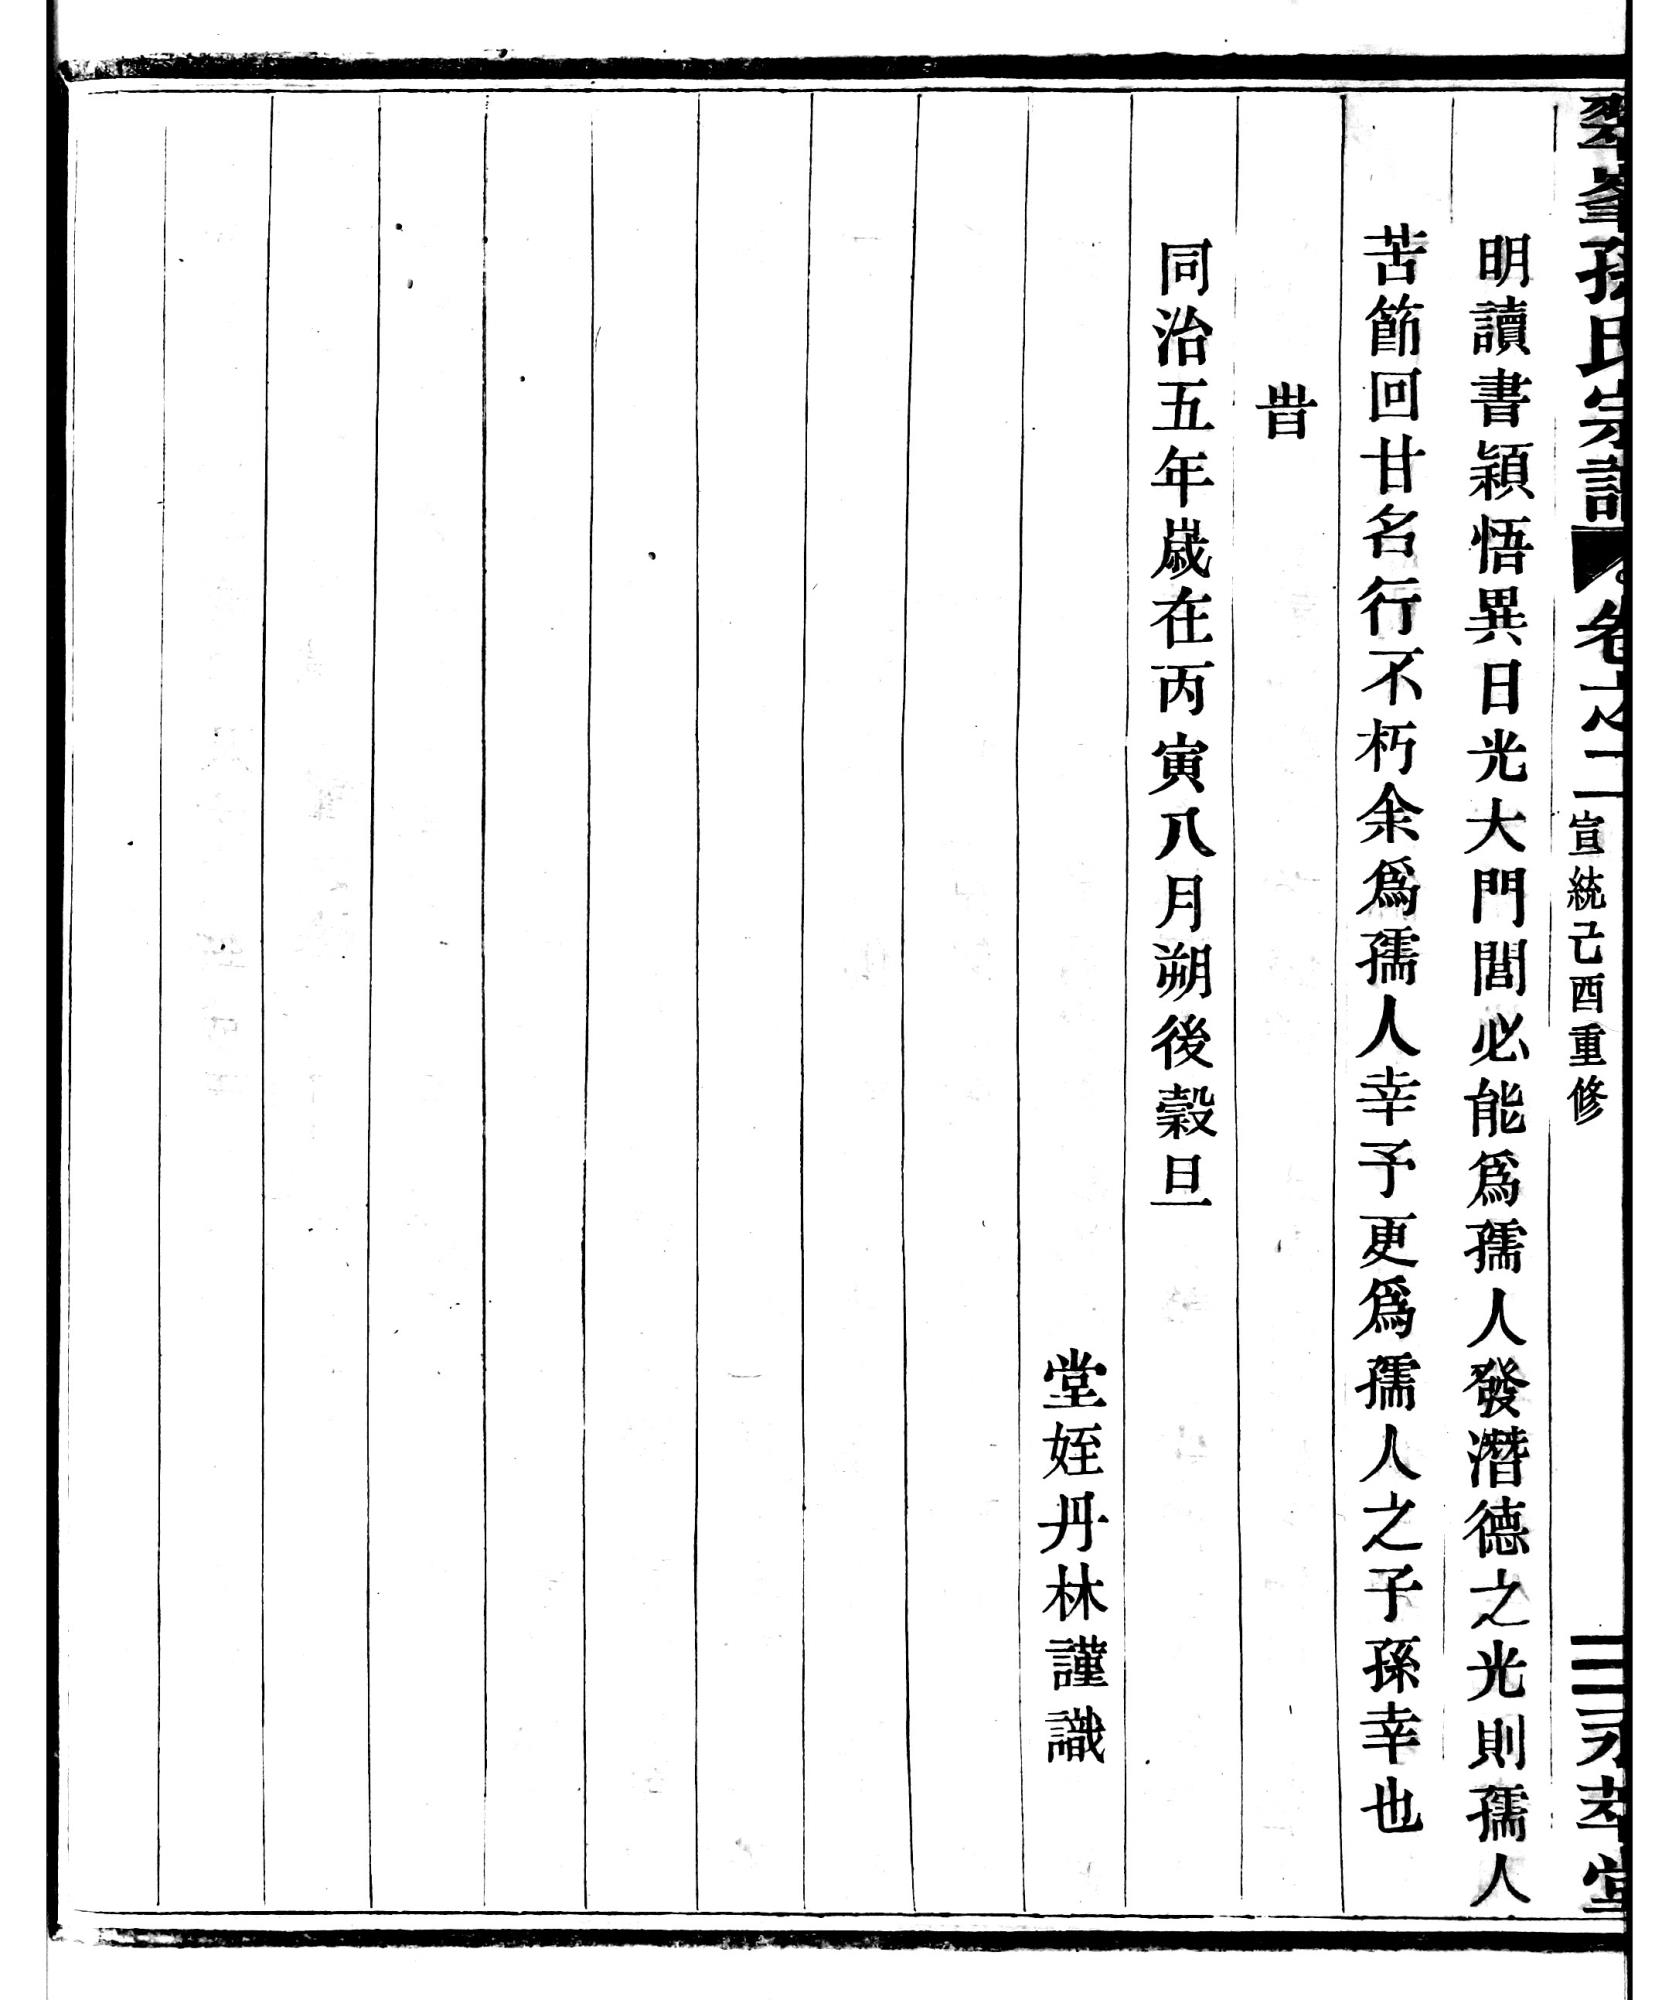 翠峯孫氏宗譜 卷之二 宣統己酉重修 三 永萃堂
明讀書穎悟異日光大門閭必能爲孺人發潛德之光則孺人
苦節回甘名行不朽余爲孺人幸予更爲孺人之子孫幸也
旹
同治五年歲在丙寅八月朔後穀旦
堂姪丹林謹識